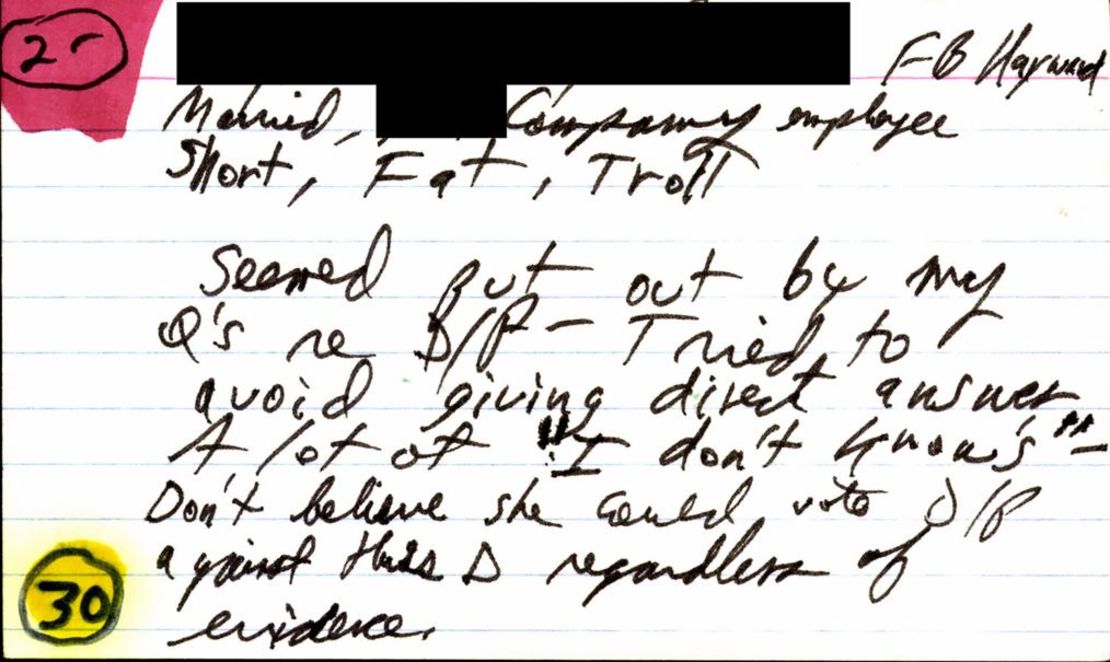 2-
FB Hayward
Married, Company employee
Short, Fat, Troll
Seemed put out by my
Q's re D/P - Tried to
avoid giving direct answer
A lot of "I don't know's" -
Don't believe she could vote D/P
against this D regardless of
evidence.
30